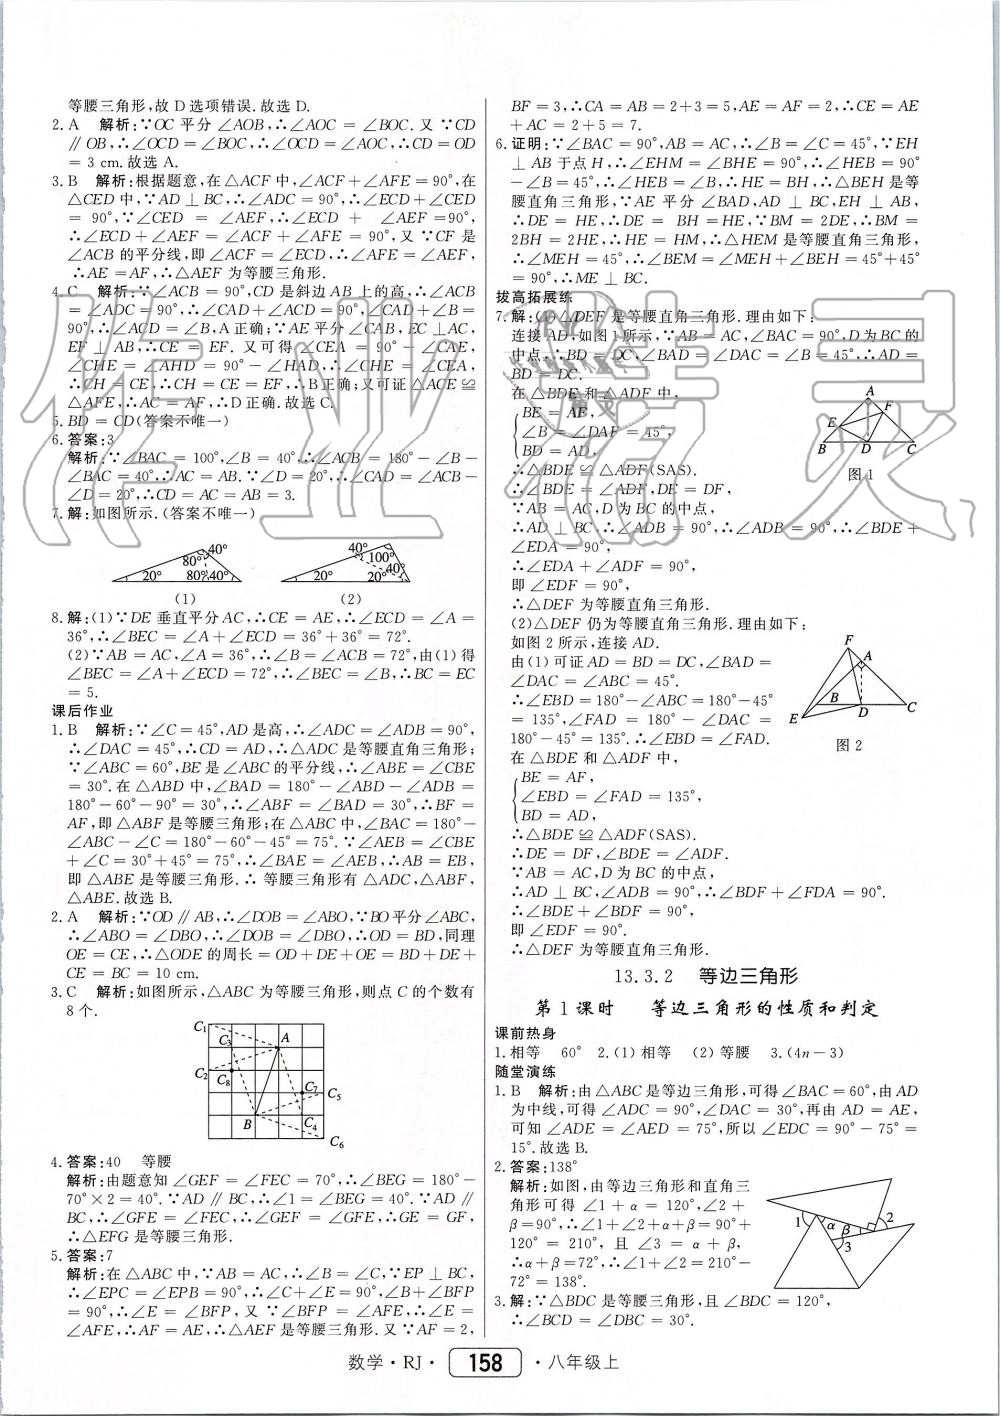 等腰三角形,故 D 选项错误.故选 D.
2. A 解析:∵OC 平分∠AOB,∴∠AOC = ∠BOC. 又∵CD
∥ OB,∴∠OCD = ∠BOC,∴∠OCD = ∠AOC,∴CD = OD
= 3 cm.故选 A.
3. B 解析:根据题意,在△ACF 中,∠ACF + ∠AFE = 90°,在
△CED 中,∵AD ⊥ BC,∴∠ADC = 90°,∴∠ECD + ∠CED
= 90°,∵∠CED = ∠AEF,∴∠ECD + ∠AEF = 90°,
∴∠ECD + ∠AEF = ∠ACF + ∠AFE = 90°,又∵CF 是
∠ACB 的平分线,即∠ACF = ∠ECD,∴∠AFE = ∠AEF,
∴AE = AF,∴△AEF 为等腰三角形.
4. C 解析:∵∠ACB = 90°,CD 是斜边 AB 上的高,∴∠ACB
= ∠ADC = 90°,∴∠CAD + ∠ACD = 90°,∠CAD + ∠B =
90°,∴∠ACD = ∠B,A 正确;∵AE 平分∠CAB,EC ⊥AC,
EF ⊥ AB,∴CE = EF. 又可得∠CEA = 90° − ∠CAE,
∠CHE = ∠AHD = 90° − ∠HAD,∴∠CHE = ∠CEA,
∴CH = CE,∴CH = CE = EF,∴B 正确;又可证△ACE ≌
△AFE,∴AC = AF,∴D 正确.故选 C.
5. BD = CD(答案不唯一)
6. 答案:3
解析:∵∠BAC = 100°,∠B = 40°,∴∠ACB = 180° − ∠B −
∠BAC = 40°,∴AC = AB. ∵∠D = 20°,∴∠CAD = ∠ACB −
∠D = 20°,∴CD = AC = AB = 3.
7. 解:如图所示.(答案不唯一)
40° 80° 20° 80° 40°
40° 100° 20° 20° 40°
(1) (2)
8. 解:(1)∵DE 垂直平分 AC,∴CE = AE,∴∠ECD = ∠A =
36°,∴∠BEC = ∠A + ∠ECD = 36° + 36° = 72°.
(2)∵AB = AC,∠A = 36°,∴∠B = ∠ACB = 72°,由(1)得
∠BEC = ∠A + ∠ECD = 72°,∴∠BEC = ∠B,∴BC = EC
= 5.
课后作业
1. B 解析:∵∠C = 45°,AD 是高,∴∠ADC = ∠ADB = 90°,
∴∠DAC = 45°,∴CD = AD,∴△ADC 是等腰直角三角形;
∵∠ABC = 60°,BE 是∠ABC 的平分线,∴∠ABE = ∠CBE
= 30°. 在△ABD 中,∠BAD = 180° − ∠ABD − ∠ADB =
180° − 60° − 90° = 30°,∴∠ABF = ∠BAD = 30°,∴BF =
AF,即△ABF 是等腰三角形;在△ABC 中,∠BAC = 180° −
∠ABC − ∠C = 180° − 60° − 45° = 75°. ∵∠AEB = ∠CBE
+ ∠C = 30° + 45° = 75°,∴∠BAE = ∠AEB,∴AB = EB,
即△ABE 是等腰三角形.∴等腰三角形有△ADC,△ABF,
△ABE.故选 B.
2. A 解析:∵OD ∥ AB,∴∠DOB = ∠ABO,∵BO平分∠ABC,
∴∠ABO = ∠DBO,∴∠DOB = ∠DBO,∴OD = BD,同理
OE = CE,∴△ODE 的周长 = OD + DE + OE = BD + DE +
CE = BC = 10 cm.
3. C 解析:如图所示,△ABC 为等腰三角形,则点 C 的个数有
8 个.
C₁ C₃ A
C₂ C₈ C₇ C₅
B C₄
C₆
4. 答案:40 等腰
解析:由题意知∠GEF = ∠FEC = 70°,∴∠BEG = 180° −
70° × 2 = 40°. ∵AD ∥ BC,∴∠1 = ∠BEG = 40°. ∵AD ∥
BC,∴∠GFE = ∠FEC,∴∠GEF = ∠GFE,∴GE = GF,
∴△EFG 是等腰三角形.
5. 答案:7
解析:在△ABC 中,∵AB = AC,∴∠B = ∠C,∵EP ⊥ BC,
∴∠EPC = ∠EPB = 90°,∴∠C + ∠E = 90°,∠B + ∠BFP
= 90°,∴∠E = ∠BFP,又∵∠BFP = ∠AFE,∴∠E =
∠AFE,∴AF = AE,∴△AEF 是等腰三角形.又∵AF = 2,
BF = 3,∴CA = AB = 2 + 3 = 5,AE = AF = 2,∴CE = AE
+ AC = 2 + 5 = 7.
6. 证明:∵∠BAC = 90°,AB = AC,∴∠B = ∠C = 45°,∵EH
⊥ AB 于点 H,∴∠EHM = ∠BHE = 90°,∴∠HEB = 90°
− ∠B = 45°,∴∠HEB = ∠B,∴HE = BH,∴△BEH 是等
腰直角三角形,∵AE 平分∠BAD,AD ⊥ BC,EH ⊥ AB,
∴DE = HE,∴DE = BH = HE,∵BM = 2DE,∴BM =
2BH = 2HE,∴HE = HM,∴△HEM 是等腰直角三角形,
∴∠MEH = 45°,∴∠BEM = ∠MEH + ∠BEH = 45° + 45°
= 90°,∴ME ⊥ BC.
拔高拓展练
7. 解:(1)△DEF 是等腰直角三角形.理由如下:
连接 AD,如图 1 所示,∵AB = AC,∠BAC = 90°,D 为 BC 的
中点,∴BD = DC,∠BAD = ∠DAC = ∠B = 45°,∴AD =
BD = DC.
在△BDE 和△ADF 中,
BE = AF,
∠B = ∠DAF = 45°,
BD = AD,
A
E F
B D C
图 1
∴△BDE ≌ △ADF(SAS).
∴∠BDE = ∠ADF,DE = DF,
∵AB = AC,D 为 BC 的中点,
∴AD ⊥ BC,∠ADB = 90°,∴∠ADB = 90°,∴∠BDE +
∠EDA = 90°,
∴∠EDA + ∠ADF = 90°,
即∠EDF = 90°,
∴△DEF 为等腰直角三角形.
(2)△DEF 仍为等腰直角三角形.理由如下:
如图 2 所示,连接 AD.
由(1)可证 AD = BD = DC,∠BAD =
∠DAC = ∠ABC = 45°.
∴∠EBD = 180° − ∠ABC = 180° − 45°
= 135°,∠FAD = 180° − ∠DAC =
180° − 45° = 135°.∴∠EBD = ∠FAD.
F
A
B
E D C
图 2
在△BDE 和△ADF 中,
BE = AF,
∠EBD = ∠FAD = 135°,
BD = AD,
∴△BDE ≌ △ADF(SAS).
∴DE = DF,∠BDE = ∠ADF.
∵AB = AC,D 为 BC 的中点,
∴AD ⊥ BC,∠ADB = 90°,∴∠BDF + ∠FDA = 90°.
∴∠BDE + ∠BDF = 90°,
即∠EDF = 90°.
∴△DEF 为等腰直角三角形.
13.3.2 等边三角形
第 1 课时 等边三角形的性质和判定
课前热身
1. 相等 60° 2. (1) 相等 (2) 等腰 3. (4n − 3)
随堂演练
1. B 解析:由△ABC 是等边三角形,可得∠BAC = 60°,由 AD
为中线,可得∠ADC = 90°,∠DAC = 30°,再由 AD = AE,
可知∠ADE = ∠AED = 75°,所以∠EDC = 90° − 75° =
15°.故选 B.
2. 答案:138°
解析:如图,由等边三角形和直角三
角形可得∠1 + α = 120°,∠2 +
β = 90°,∴∠1 + ∠2 + α + β = 90° +
120° = 210°,且∠3 = α + β,
∴α + β = 72°,∴∠1 + ∠2 = 210° −
72° = 138°.
1 α β 2
3
3. 解:∵△BDC 是等腰三角形,且∠BDC = 120°,
∴∠BCD = ∠DBC = 30°.
数学 · RJ · 158 · 八年级上
作业精灵